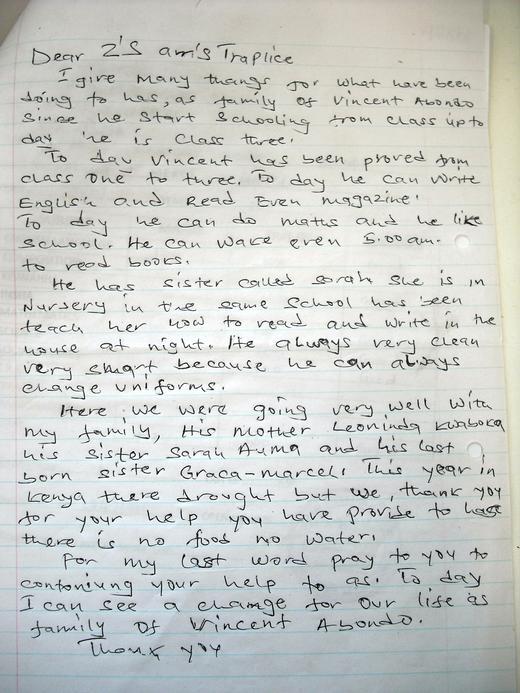 Dear Z'S ami's Traplice
I give many thangs for what have been
doing to has, as family of Vincent Abondo
since he start schooling from class up to
day he is class three.
To day Vincent has been proved from
class one to three. To day he can write
English and Read Even magazine.
To day he can do maths and he like
school. He can wake even 5.00am.
to read books.
He has sister called sorah she is in
Nursery in the same school has been
teach her how to read and write in the
house at night. He always very clean
very smart because he can always
change uniforms.
Here we were going very well with
my family, His mother Leoninda Kwaboka
his sister Sarah Auma and his last
born sister Graca-marcel. This year in
Kenya there drought but we, thank you
for your help you have provide to hase
there is no food no water.
For my last word pray to you to
contoniung your help to as. To day
I can see a change for our life as
family of Vincent Abondo.
Thank you